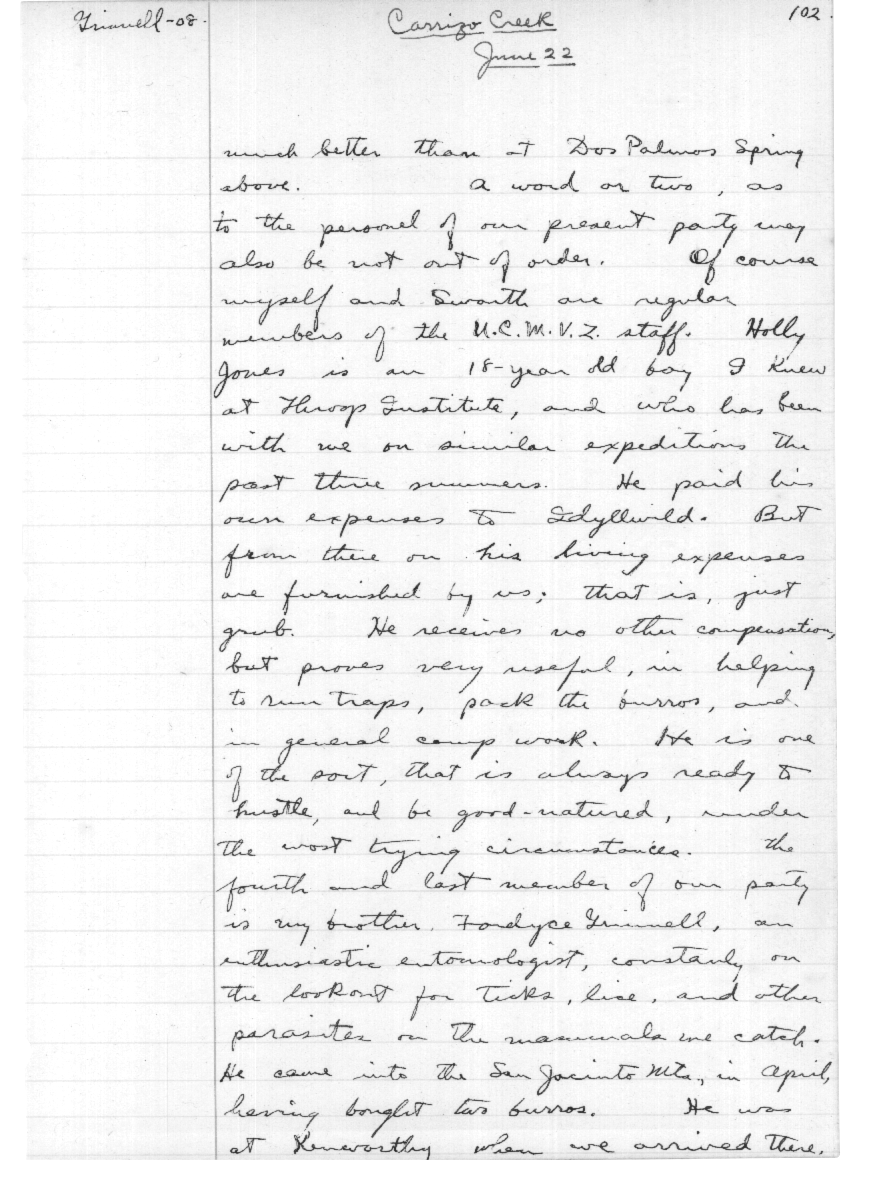 Grinnell-08.
Carrizo Creek
102.
June 22
much better than at Dos Palmos Spring
above. A word or two, as
to the personel of our present party may
also be not out of order. Of course
myself and Swarth are regular
members of the U.C.M.V.Z. staff. Holly
Jones is an 18-year old boy I knew
at Throop Institute, and who has been
with me on similar expeditions the
past three summers. He paid his
own expenses to Idyllwild. But
from there on his living expenses
are furnished by us; that is, just
grub. He receives no other compensation,
but proves very useful, in helping
to run traps, pack the burros, and
in general camp work. He is one
of the sort, that is always ready to
hustle, and be good-natured, under
the most trying circumstances. The
fourth and last member of our party
is my brother, Fordyce Grinnell, an
enthusiastic entomologist, constanly on
the lookout for ticks, lice, and other
parasites on the mammals we catch.
He came into the San Jacinto Mts., in April,
having bought two burros. He was
at Kenworthy when we arrived there.